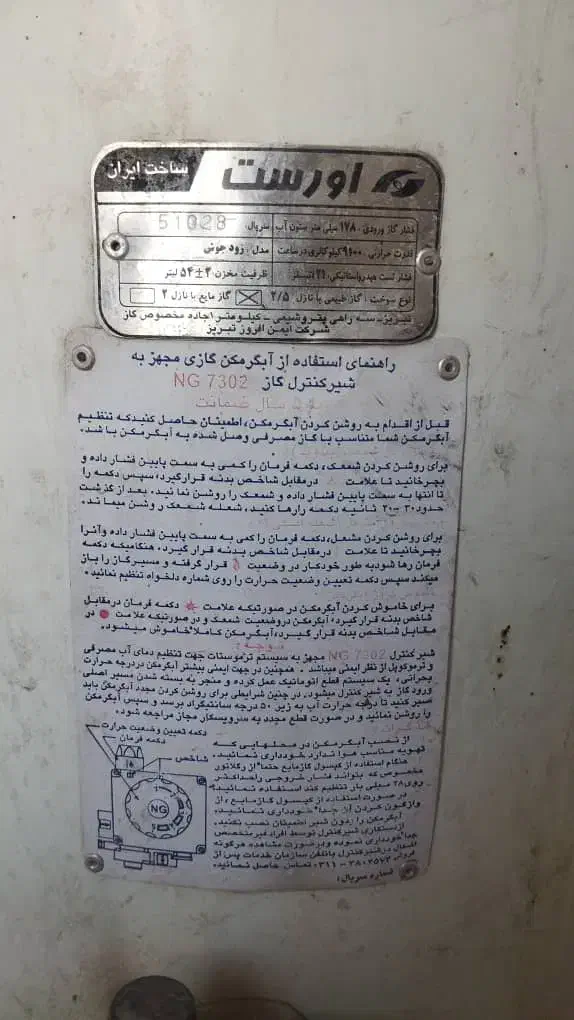 ساخت ایران
اورست
فشار گاز ورودی ۱۷۸ میلی متر ستون آب سریال 51028
قدرت حرارتی ۹۶۰۰ کیلوکالری در ساعت مدل زود جوش
فشار تست هیدرواستاتیکی ظرفیت مخزن ۳±۵۴ لیتر
نوع سوخت: گاز طبیعی با نازل ۲/۵ گاز مایع با نازل ۲
تبریز سه راهی پتروشیمی کیلومتر ۱ جاده مخصوص گاز
شرکت ایمن افروز تبریز
راهنمای استفاده از آبگرمکن گازی مجهز به
شیر کنترل گاز NG 7302
سال ضمانت
قبل از اقدام به روشن کردن آبگرمکن، اطمینان حاصل کنید که تنظیم
آبگرمکن شما متناسب با گاز مصرفی وصل شده به آبگرمکن باشد.
برای روشن کردن شمعک، دکمه فرمان را کمی به سمت پایین فشار داده و
بچرخانید تا علامت در مقابل شاخص بدنه قرار گیرد، سپس دکمه را
تا انتها به سمت پایین فشار داده و شمعک را روشن نمائید. بعد از گذشت
حدود ۳۰-۲۰ ثانیه دکمه را رها کنید، شعله شمعک روشن میماند.
برای روشن کردن مشعل، دکمه فرمان را کمی به سمت پایین فشار داده و آنرا
بچرخانید تا علامت در مقابل شاخص بدنه قرار گیرد. هنگامیکه دکمه
فرمان رها شود به طور خودکار در وضعیت قرار گرفته و مسیر گاز را باز
میکند سپس دکمه تعیین وضعیت حرارت را روی شماره دلخواه تنظیم نمائید.
برای خاموش کردن آبگرمکن در صورتیکه علامت دکمه فرمان در مقابل
شاخص بدنه قرار گیرد، آبگرمکن در وضعیت شمعک و در صورتیکه علامت در
مقابل شاخص بدنه قرار گیرد، آبگرمکن کاملا خاموش میشود.
توجه:
شیر کنترل NG 7302 مجهز به سیستم ترموستات جهت تنظیم دمای آب مصرفی
و ترموکوپل از نظر ایمنی میباشد. همچنین در جهت ایمنی بیشتر آبگرمکن در درجه حرارت
بحرانی، یک سیستم قطع اتوماتیک عمل کرده و منجر به بسته شدن مسیر اصلی
ورود گاز به شیر کنترل میشود. در چنین شرایطی برای روشن کردن مجدد آبگرمکن باید
صبر کنید تا درجه حرارت آب به زیر ۵۰ درجه سانتیگراد برسد و سپس آبگرمکن
را روشن نمائید و در صورت قطع مجدد به سرویسکار مجاز مراجعه شود.
تذکرات
از نصب آبگرمکن در محلهایی که
تهویه مناسب هوا ندارد خودداری نمائید.
هنگام استفاده از کپسول گاز مایع حتما از رگلاتور
مخصوص که بتواند فشار خروجی را حداکثر
روی ۲۸ میلی بار تنظیم کند استفاده نمائید.
در صورت استفاده از کپسول گاز مایع، از
واژگون کردن آن جدا خودداری نمائید.
آبگرمکن را بدون شیر اطمینان نصب نکنید.
از دستکاری شیر کنترل توسط افراد غیر متخصص
جدا خودداری نموده و در صورت مشاهده هرگونه
اشکال در شیر کنترل با تلفن سازمان خدمات پس از
فروش ۳۸۰۷۵۷۳-۰۳۱۱ تماس حاصل نمائید.
شماره سریال:
دکمه تعیین وضعیت حرارت
دکمه فرمان
شاخص
NG